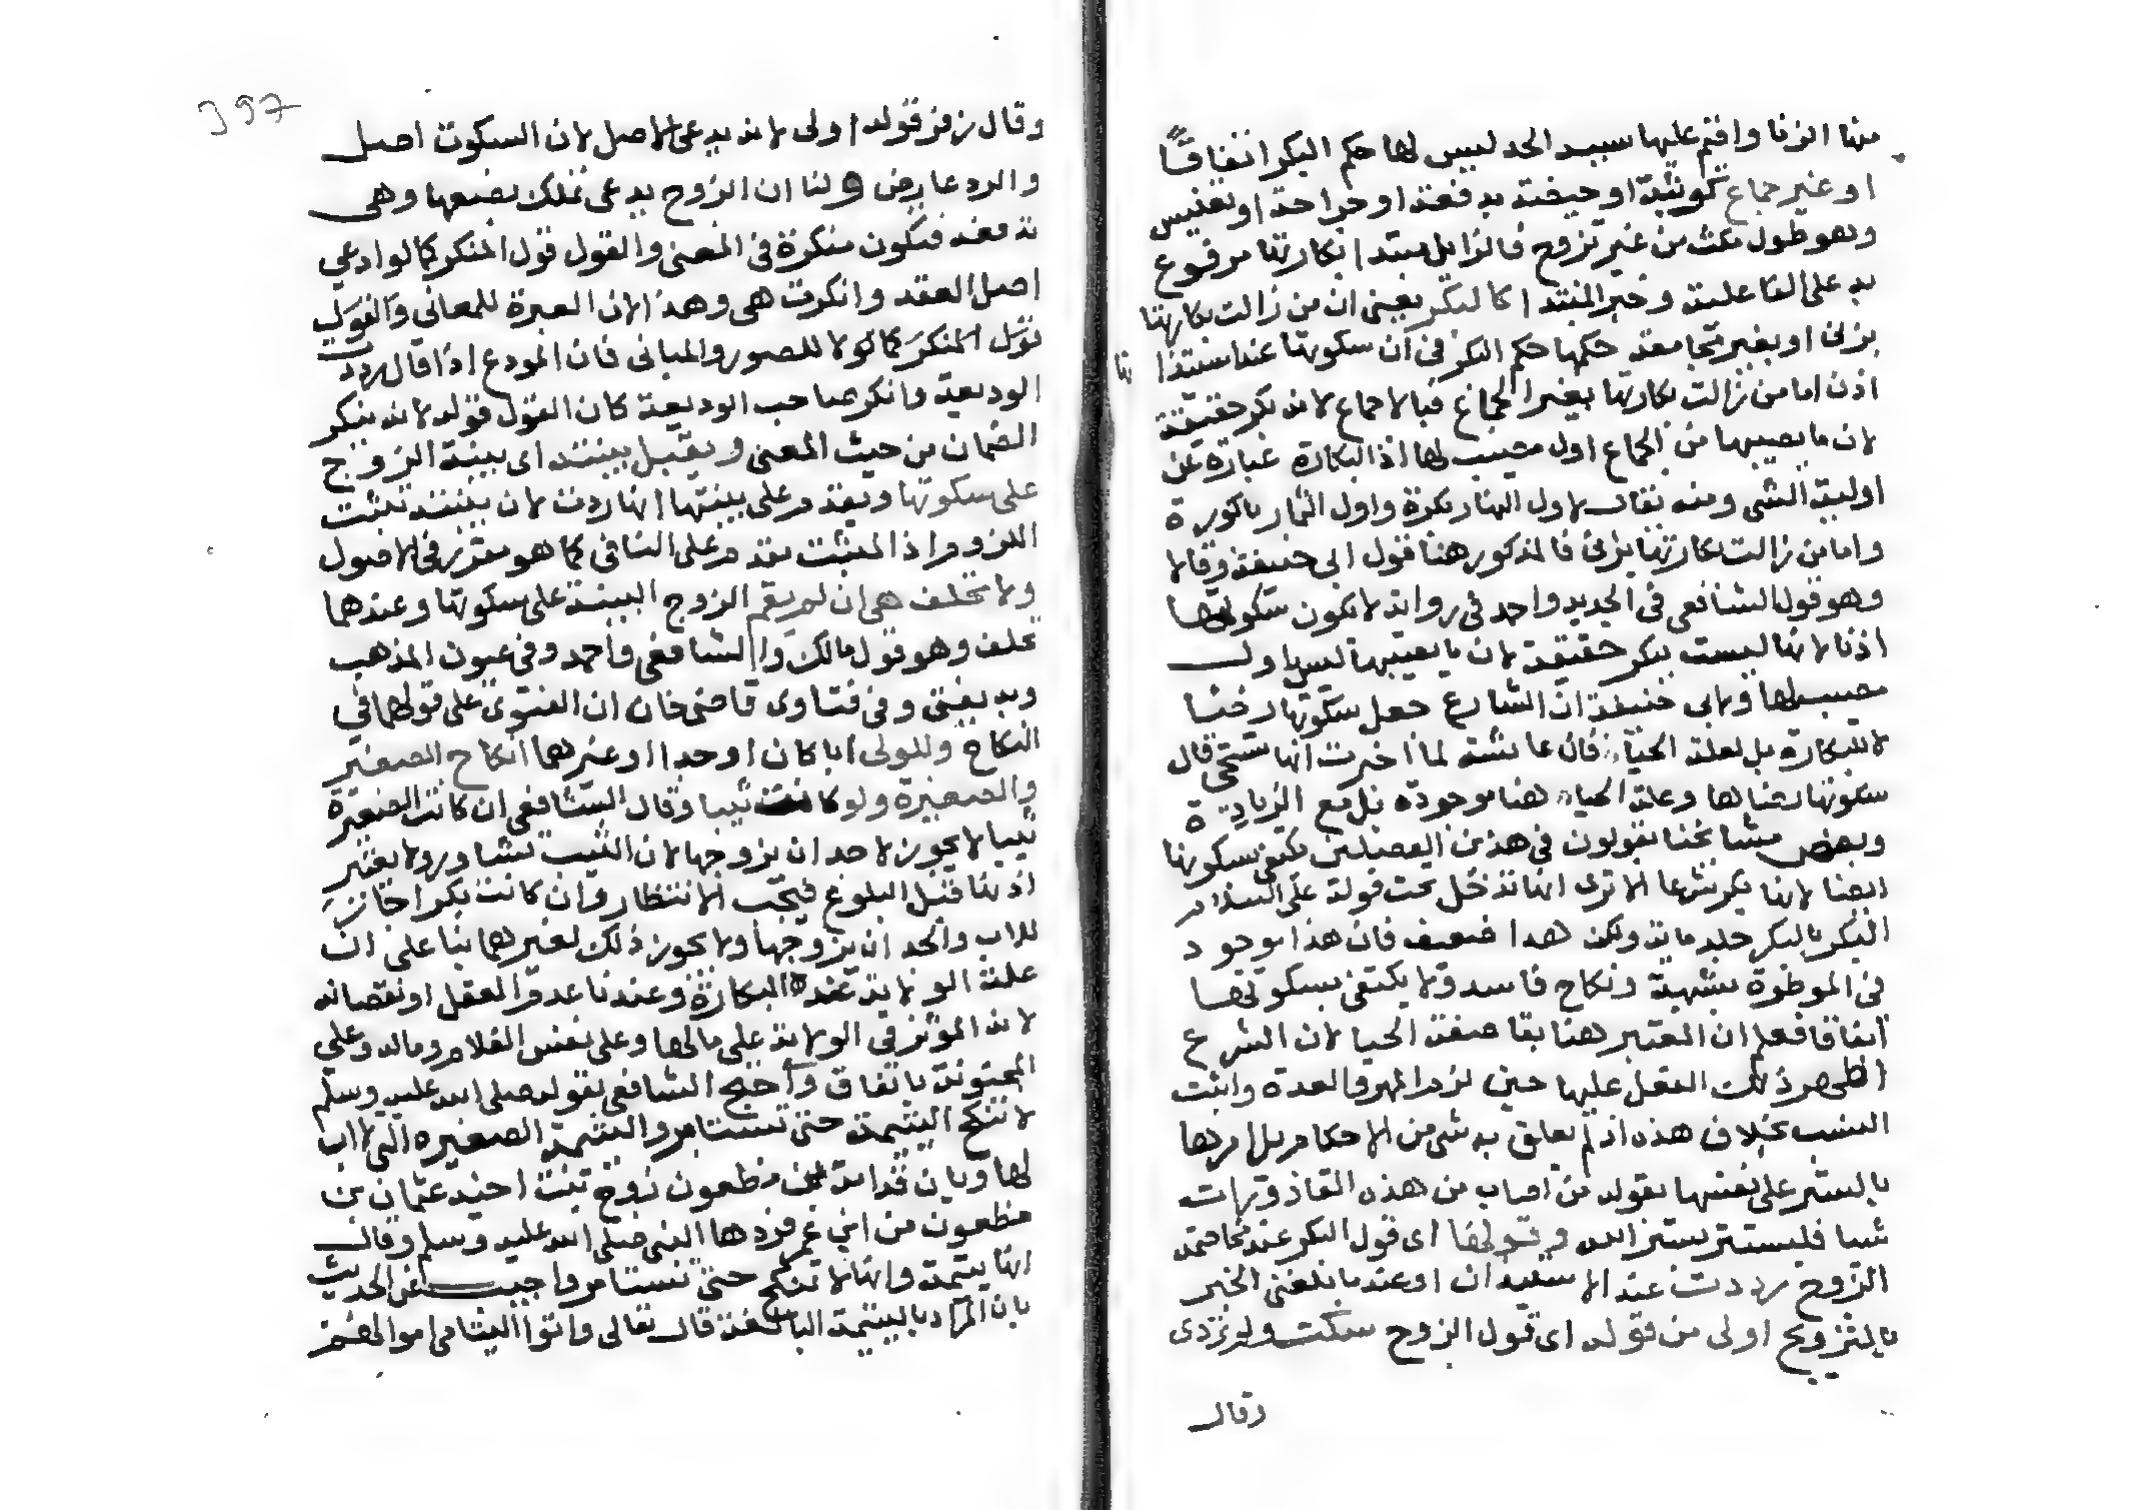 منها الزنا واقيم عليها سببه الحد ليس لها حكم البكر اتفاقًا
او غير جماع كوثبة او حيضة بدفعة او جراحة او تعنيس
وهو طول مكث من غير تزوج فالزايل مبتدا بكارتها مرفوع
به على الفاعلية وخبر المبتدا كالبكر يعني ان من زالت بكارتها
بزنى او بغير مجامعة حكمها حكم البكر في ان سكوتها عند استئذانها
اذن اما من زالت بكارتها بغير الجماع فبالاجماع لانه بكر حقيقة
لان ما يصيبها من الجماع اول مصيب لها اذ البكارة عبارة عن
اولية الشي ومنه يقال لاول النهار بكرة واول الثمار باكورة
واما من زالت بكارتها بزنى فالمذكور هنا قول ابي حنيفة وقالا
وهو قول الشافعي في الجديد واحمد في رواية لا يكون سكوتها
اذنا لانها ليست ببكر حقيقة لان ما يصيبها ليس اول
مصيب لها ولابي حنيفة ان الشارع جعل سكوتها رضا
لا للبكارة بل لعلة الحياء فان عائشة لما اخبرت انها تستحي قال
سكوتها رضاها وعلة الحياء هنا موجودة بل مع الزيادة
وبعض مشايخنا يقولون في هذين الفصلين يكتفى بسكوتها
ايضا لانها بكر شرعا الا ترى انها تدخل تحت قوله على السلام
البكر بالبكر جلد ماية ولكن هذا ضعيف فان هذا موجود
في الموطوة بشبهة ونكاح فاسد ولا يكتفى بسكوتها
اتفاقا فعلم ان المعتبر هنا بقا صفة الحيا لان الشرع
اظهر ذلك الفعل عليها حين لزم المهر والعدة واثبت
النسب بخلاف هذه اذ لم يعلق به شي من الاحكام بل امرها
بالستر على نفسها بقوله من اصاب من هذه القاذورات
شيا فليستتر بستر الله وقولها اي قول البكر عند مخاصمة
الزوج رددت عند الاستيذان او عند ما بلغني الخبر
بالتزويج اولى من قوله اي قول الزوج سكت ولم تردي
وقال
397
وقال زفر قوله اولى لانه يدعي الاصل لان السكوت اصل
والرد عارض ولنا ان الزوج يدعي تملك بضعها وهي
تدفعه فتكون منكرة في المعنى والقول قول المنكر كما لو ادعي
اصل العقد وانكرت هي وهذا لان العبرة للمعاني والقول
قول المنكر كما لا للصور والمباني فان المودع اذا قال رددت
الوديعة وانكر صاحب الوديعة كان القول قوله لانه ينكر
الضمان من حيث المعنى ويقبل بينته اي بينة الزوج
على سكوتها ويقدم على بينتها انها ردت لان بينته تثبت
اللزوم اذ المثبت يقدم على النافي كما هو مقرر في الاصول
ولا تحلف هي ان لم يقم الزوج البينة على سكوتها وعندهما
تحلف وهو قول مالك والشافعي واحمد وفي عيون المذهب
وبه يفتى وفي فتاوى قاضي خان ان الفتوى على قولهما في
النكاح وللولي ابا كان او جدا او غيرهما انكاح الصغير
والصغيرة ولو كانت ثيبا وقال الشافعي ان كانت الصغيرة
ثيبا لا يجوز لاحد ان يزوجها لان الثيب تشاور ولا يعتبر
اذنها قبل البلوغ فيجب الانتظار وان كانت بكرا جاز
للاب والجد ان يزوجها ولا يجوز ذلك لغيرهما بنا على ان
علة الولاية عنده البكارة وعندنا عدم العقل او نقصانه
لانه المؤثر في الولاية على مالها وعلى نفس الغلام وماله وعلي
المجنونة باتفاق واحتج الشافعي بقوله صلى الله عليه وسلم
لا تنكح اليتيمة حتى تستامر واليتيمة الصغيرة التي لا اب
لها وبان قدامة بن مظعون زوج بنت اخيه عثمان بن
مظعون من ابن عمر فردها النبي صلى الله عليه وسلم وقال
انها يتيمة وانها لا تنكح حتى تستامر واجيب عن الحديث
بان المراد باليتيمة البالغة قال تعالى واتوا اليتامى اموالهم